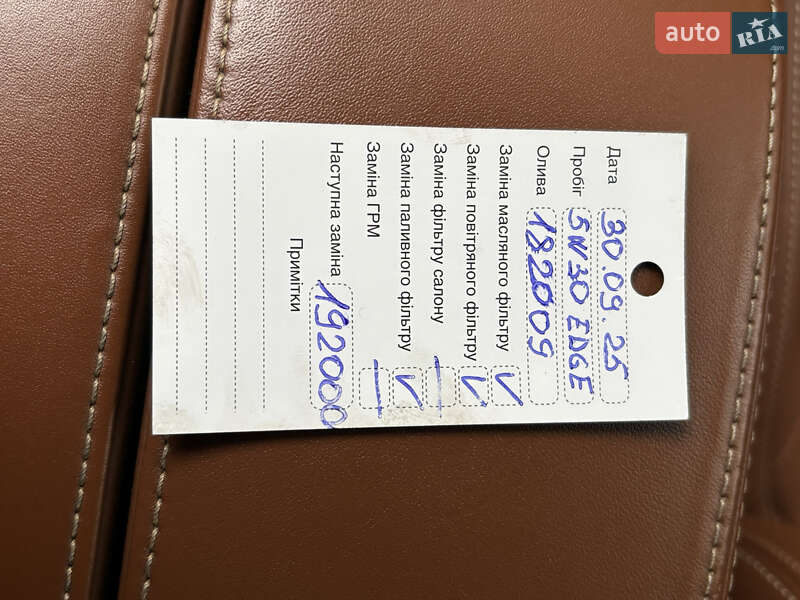 auto RIA
.com
Дата 30.09.25
Пробіг 5W30 EDGE
Олива 182009
Заміна масляного фільтру V
Заміна повітряного фільтру V
Заміна фільтру салону —
Заміна паливного фільтру V
Заміна ГРМ —
Наступна заміна 192000
Примітки